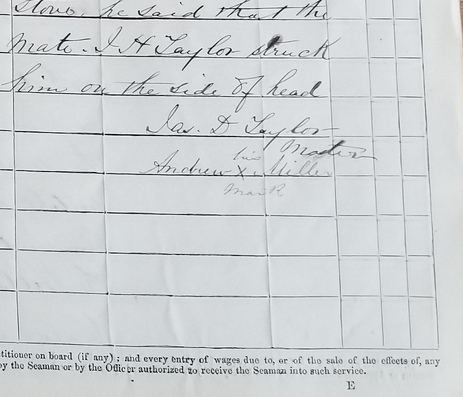 stove. he said that the
Mate. J. H Taylor struck
him on the side of head
Jas. D Taylor
Master
his
Andrew X Miller
mark
titioner on board (if any); and every entry of wages due to, or of the sale of the effects of, any
y the Seaman or by the Officer authorized to receive the Seaman into such service.
E